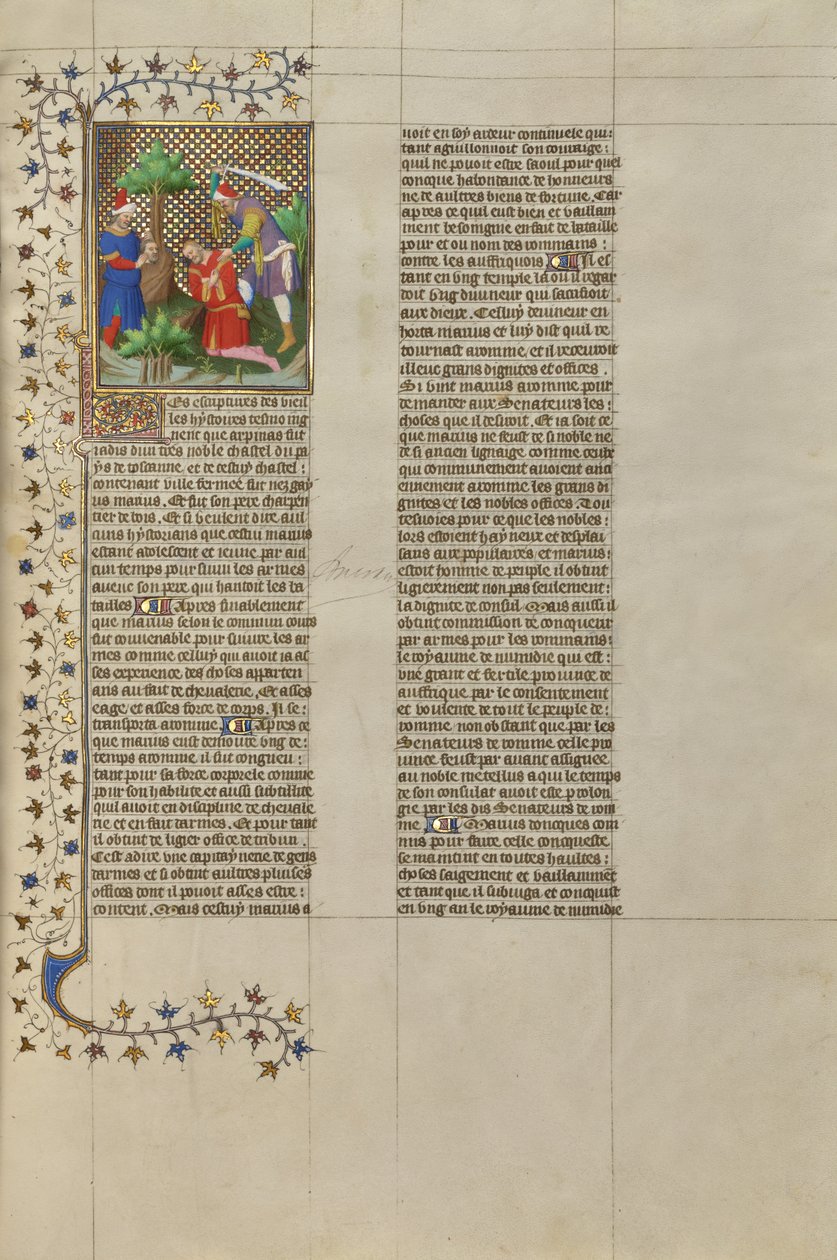 Es escriptures des vieil
les hystoires tesmoing
nent que arpinas fut
iadis dun tres noble chastel du pa
ys de toscanne, et de cestuy chastel :
contenant ville fermee fut nez gay
us marius. Et fut son pere charpen
tier de bois. Et si veulent dire aul
cuns hystorians que cestui marius
estant adolescent et ieune par aul
cun temps pour suiui les armes
auenc son pere qui hantoit les ba
tailles Apres finablement
que marius selon le commun cours
fut conuenable pour suiure les ar
mes comme celluy qui auoit ia as
ses experience des choses apparten
ans au fait de cheualerie. Et asses
eage, et asses force de corps. Il se :
transporta aromme. Apres ce
que marius eust demoure vng de :
temps aromme il fut congneu :
tant pour sa force corporele comme
pour son habilite et aussi subtillite
quil auoit en discipline de cheuale
rie et en fait darmes. Et pour tant
il obtint de ligier office de tribun .
Cest adire vne capitaynerie de gens
darmes et si obtint aultres pluises
offices dont il pouoit asses estre :
content. Mais cestuy marius a
uoit en soy ardeur continuele qui :
tant aguillonnoit son couraige :
quil ne pouoit estre saoul pour quel
concque habondance de honneurs
ne de aultres biens de fortune. Car
apres ce quil eust bien et vaillam
ment besoingne en fait de bataille
pour et ou nom des rommains :
contre les auffriquois Il es
tant en vng temple la ou il regar
doit vng diuineur qui sacrifioit
aux dieux. Celluy deuineur en
horta marius et luy dist quil re
tournast aromme, et il receuroit
illeuc grans dignites et offices .
Si vint marius aromme pour
demander aux Senateurs les :
choses que il desiroit. Et ia soit ce
que marius ne feust de si noble ne
de si ancien lignaige comme ceulx
qui communement auoient anci
ennement aromme les grans di
gnites et les nobles offices. Tou
tesuoies pour ce que les nobles :
lors estoient hayneux et desplai
sans aux populaires, et marius :
estoit homme de peuple il obtint
ligierement non pas seulement :
la dignite de consul. Mais aussi il
obtint commission de conquerir
par armes pour les rommains :
le royaume de numidie qui est :
vne grant et fertile prouince de
auffrique par le consentement
et voulente de tout le peuple de :
romme, non obstant que par les
Senateurs de romme celle pro
uince feust par auant assignee
au noble metellus a qui le temps
de son consulat auoit este p colon
gie par les dis Senateurs de rom
me Marius doncques com
mis pour faire celle conqueste
se maintint en toutes haultes :
choses saigement et vaillamment
et tant que il subiuga et conquist
en vng an le royaume de numidie